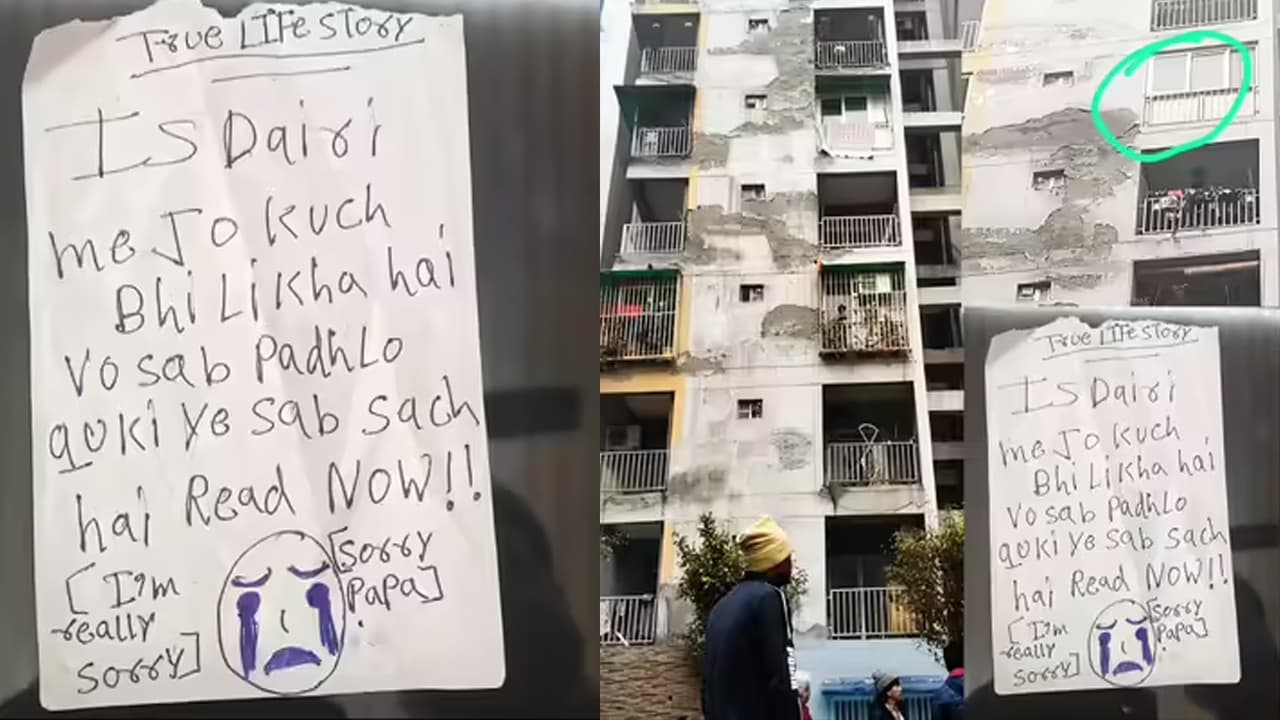 True LIFe story
Is Dairi
me Jo kuch
Bhi Likha hai
Vo sab PadhLo
quki ye sab sach
hai Read NOW!!
[I'm
really
sorry]
[sorry
Papa]
True LIFe story
Is Dairi
me Jo kuch
Bhi Likha hai
Vo sab PadhLo
quki ye sab sach
hai Read NOW!!
[I'm
really
sorry]
[sorry
Papa]